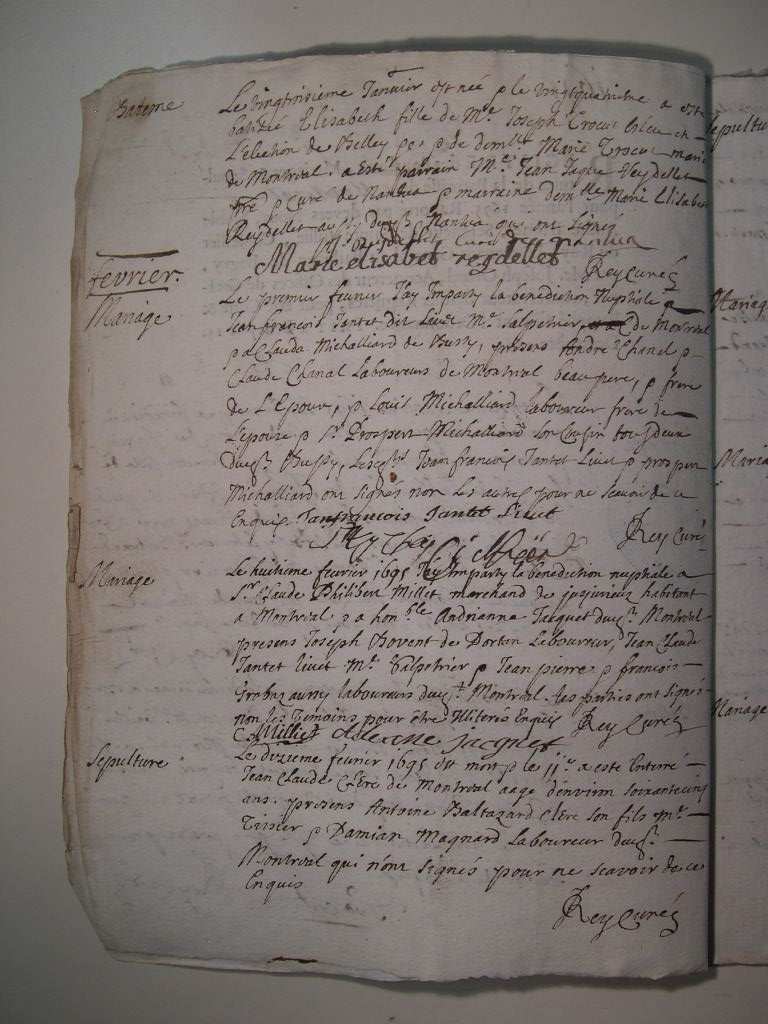 Bateme
Le vingtroisieme Janvier est née p le vingtquatrieme a esté
batisée Elisabeth fille de Mre Joseph Trocut Esleu en
L'election de Belley p de demlle Marie Trocut
de Montreal. a Esté parrain Mre Jean Jaque Reydellet
ptre p Curé de Nantua p marraine demlle Marie Elisabet
Reydellet aussy dudt Nantua qui ont Signés
Curé de Nantua
Marie elisabet reydellet Rey Curé
fevrier.
Mariage
Le premier fevrier J'ay Imparty la benediction Nuptiale a
Jean francois Tantet dit Livet Mre Salpetrier de Montreal
p a Clauda Michalliard de Bussy, presens André Chanal p
Claude Chanal Laboureurs de Montreal beaupere, p frere
de L'Epoux, p Louis Michalliard laboureur frere de
L'epouse p Sr. Prosper Michalliard son Cousin tous deux
dudt Bussy, Lesqts Jean francois Tantet Livet p prosper
Michalliard ont signés non les autres pour ne scavoir de ce
Enquis Janfrancois Tantet Livet
Rey Curé
Mariage
Le huitieme fevrier 1695 J'ay Imparty la benediction nuptiale a
Sr. Claude Philibert Millet marchand de habitant
a Montreal p a honble Andrianne Jacquet dudt Montreal
presens Joseph Bovent de Dortan Laboureur, Jean Claude
Tantet livet Mre Salpetrier p Jean pierre p francois
laboureurs dudt Montreal. les parties ont signés
non les Temoins pour être Illiterés Enquis Rey Curé
C Milliet Jacquet
Sepulture
Le dixieme fevrier 1695 est mort p le 11e a esté Enterré
Jean Claude Clerc de Montreal aagé d'environ soixantecinq
ans. presens Antoine Baltazard Clerc son fils Mre
Tissier p Damian Magnard Laboureur dudt
Montreal qui n'ont signés pour ne scavoir de ce
Enquis
Rey Curé
Sepultu
Mariag
Maria
Mariage